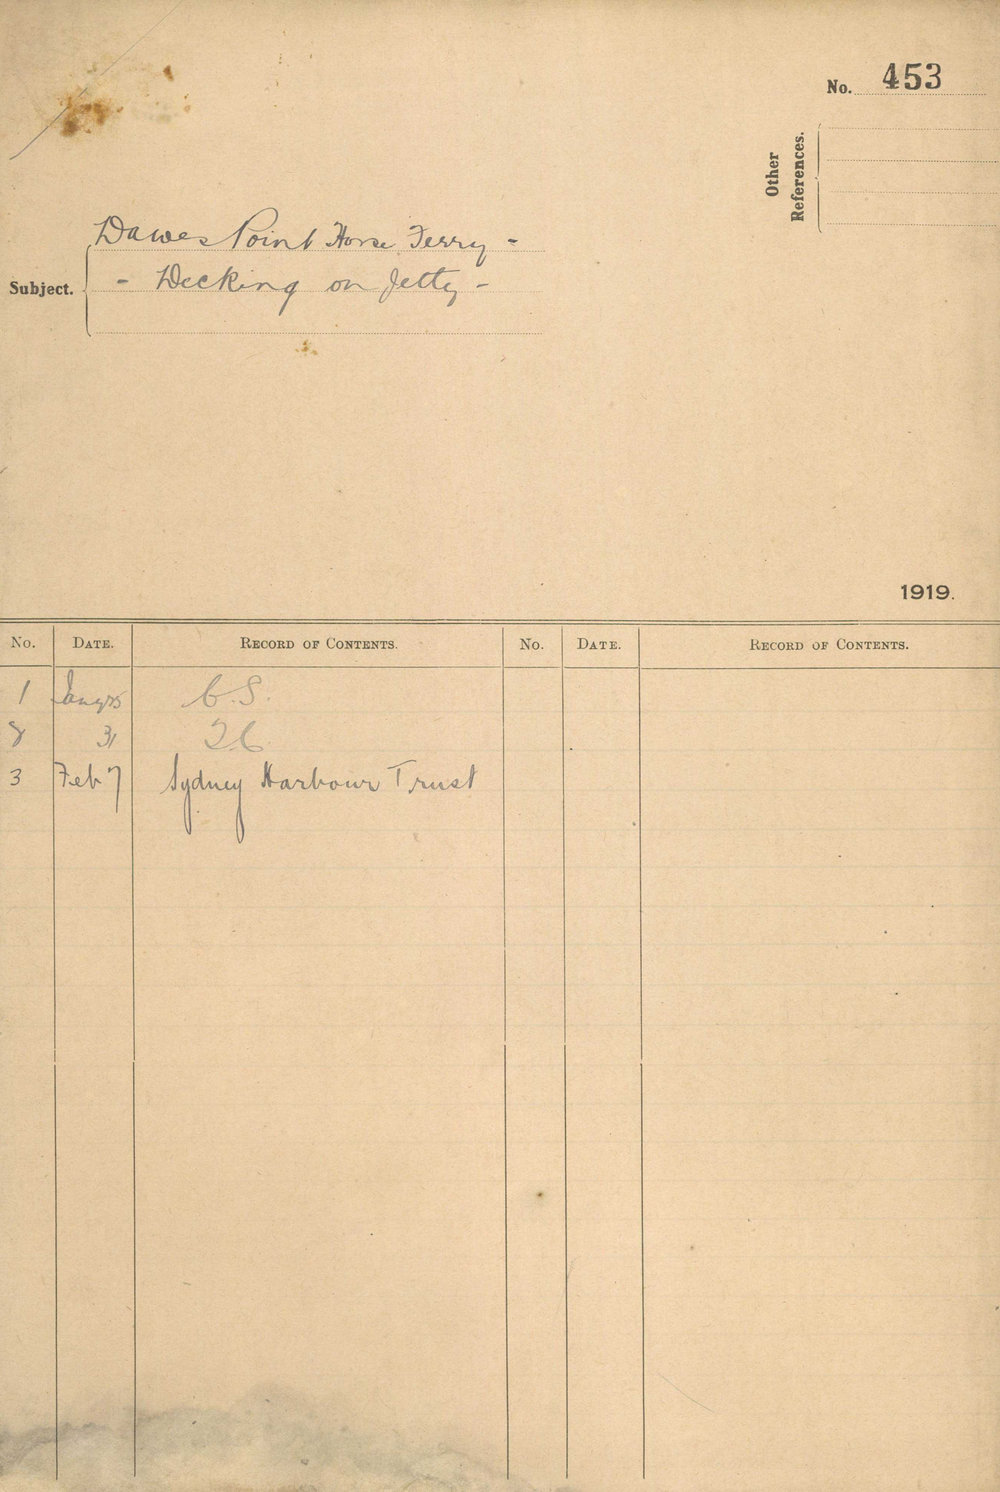 No. 453
Other References.
Dawes Point Horse Ferry -
Subject. - Decking on Jetty -
1919.
No. DATE. RECORD OF CONTENTS. No. DATE. RECORD OF CONTENTS.
1 Jany 25 C.S.
31
3 Feb 7 Sydney Harbour Trust